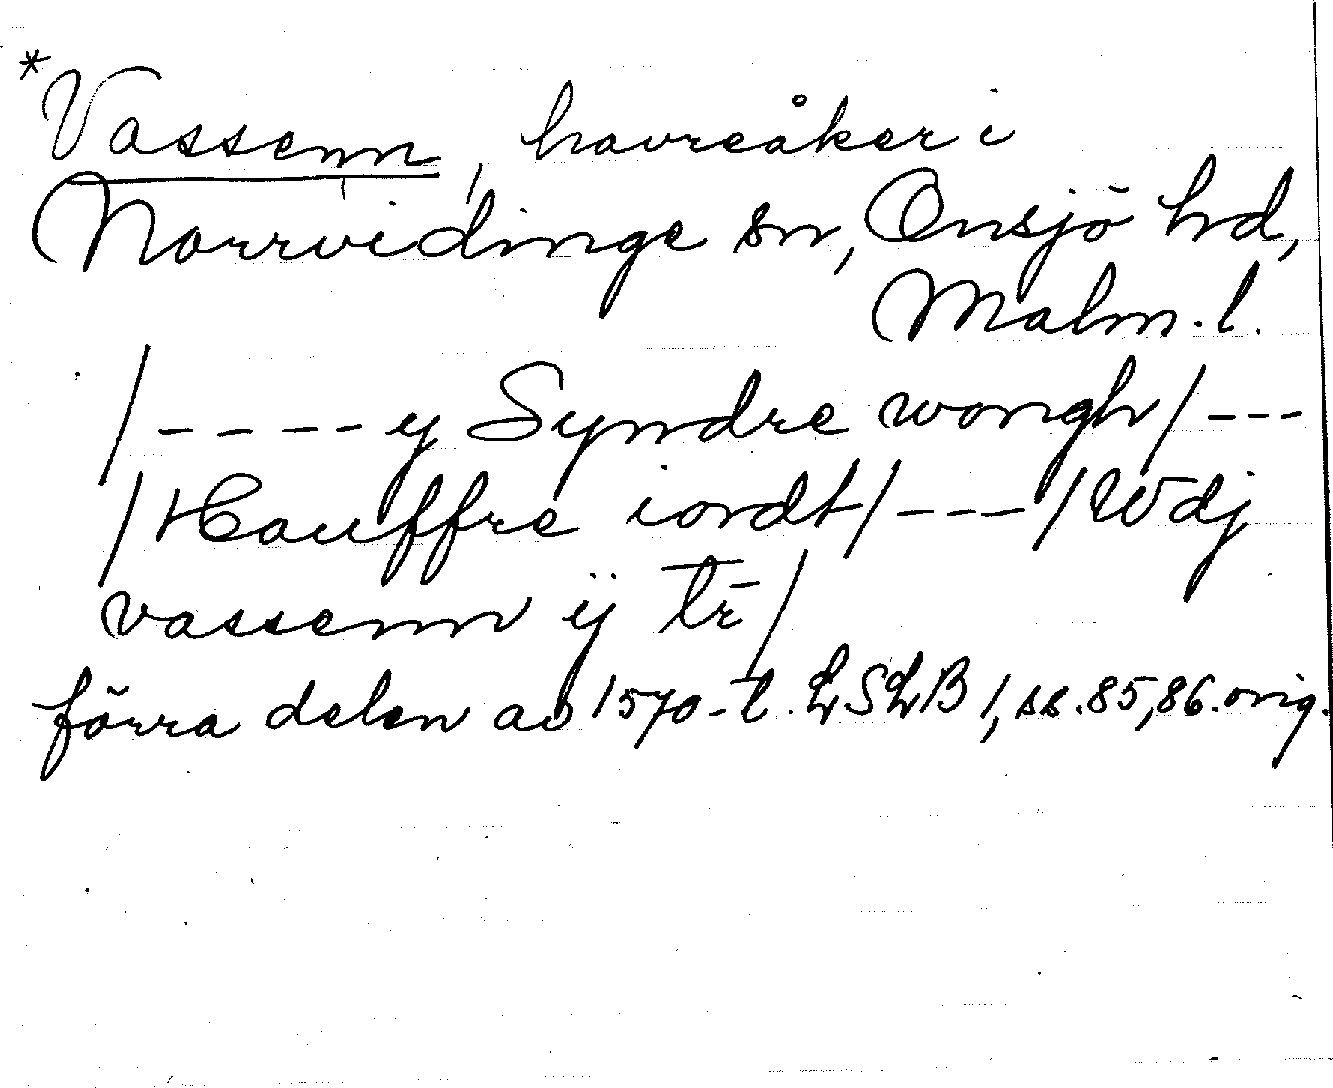 *Vassenn, havreåker i
Norrvidinge sn, Onsjö hd,
Malm. l.
/---- y Syndre wongh/---
/Hauffre iordt/---/Wdj
vassenn ÿ tē/
förra delen av 1570-t. LSLB 1, ss. 85, 86. orig.